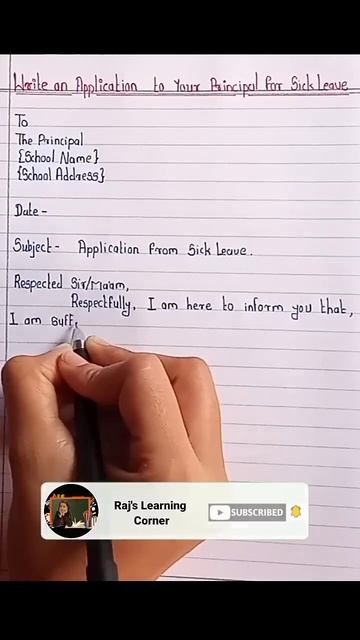 Write an Application to Your Principal For Sick Leave
To
The Principal
{School Name}
{School Address}
Date -
Subject - Application from Sick Leave.
Respected Sir/Ma'am,
Respectfully, I am here to inform you that,
I am suff
Raj's Learning
Corner
SUBSCRIBED